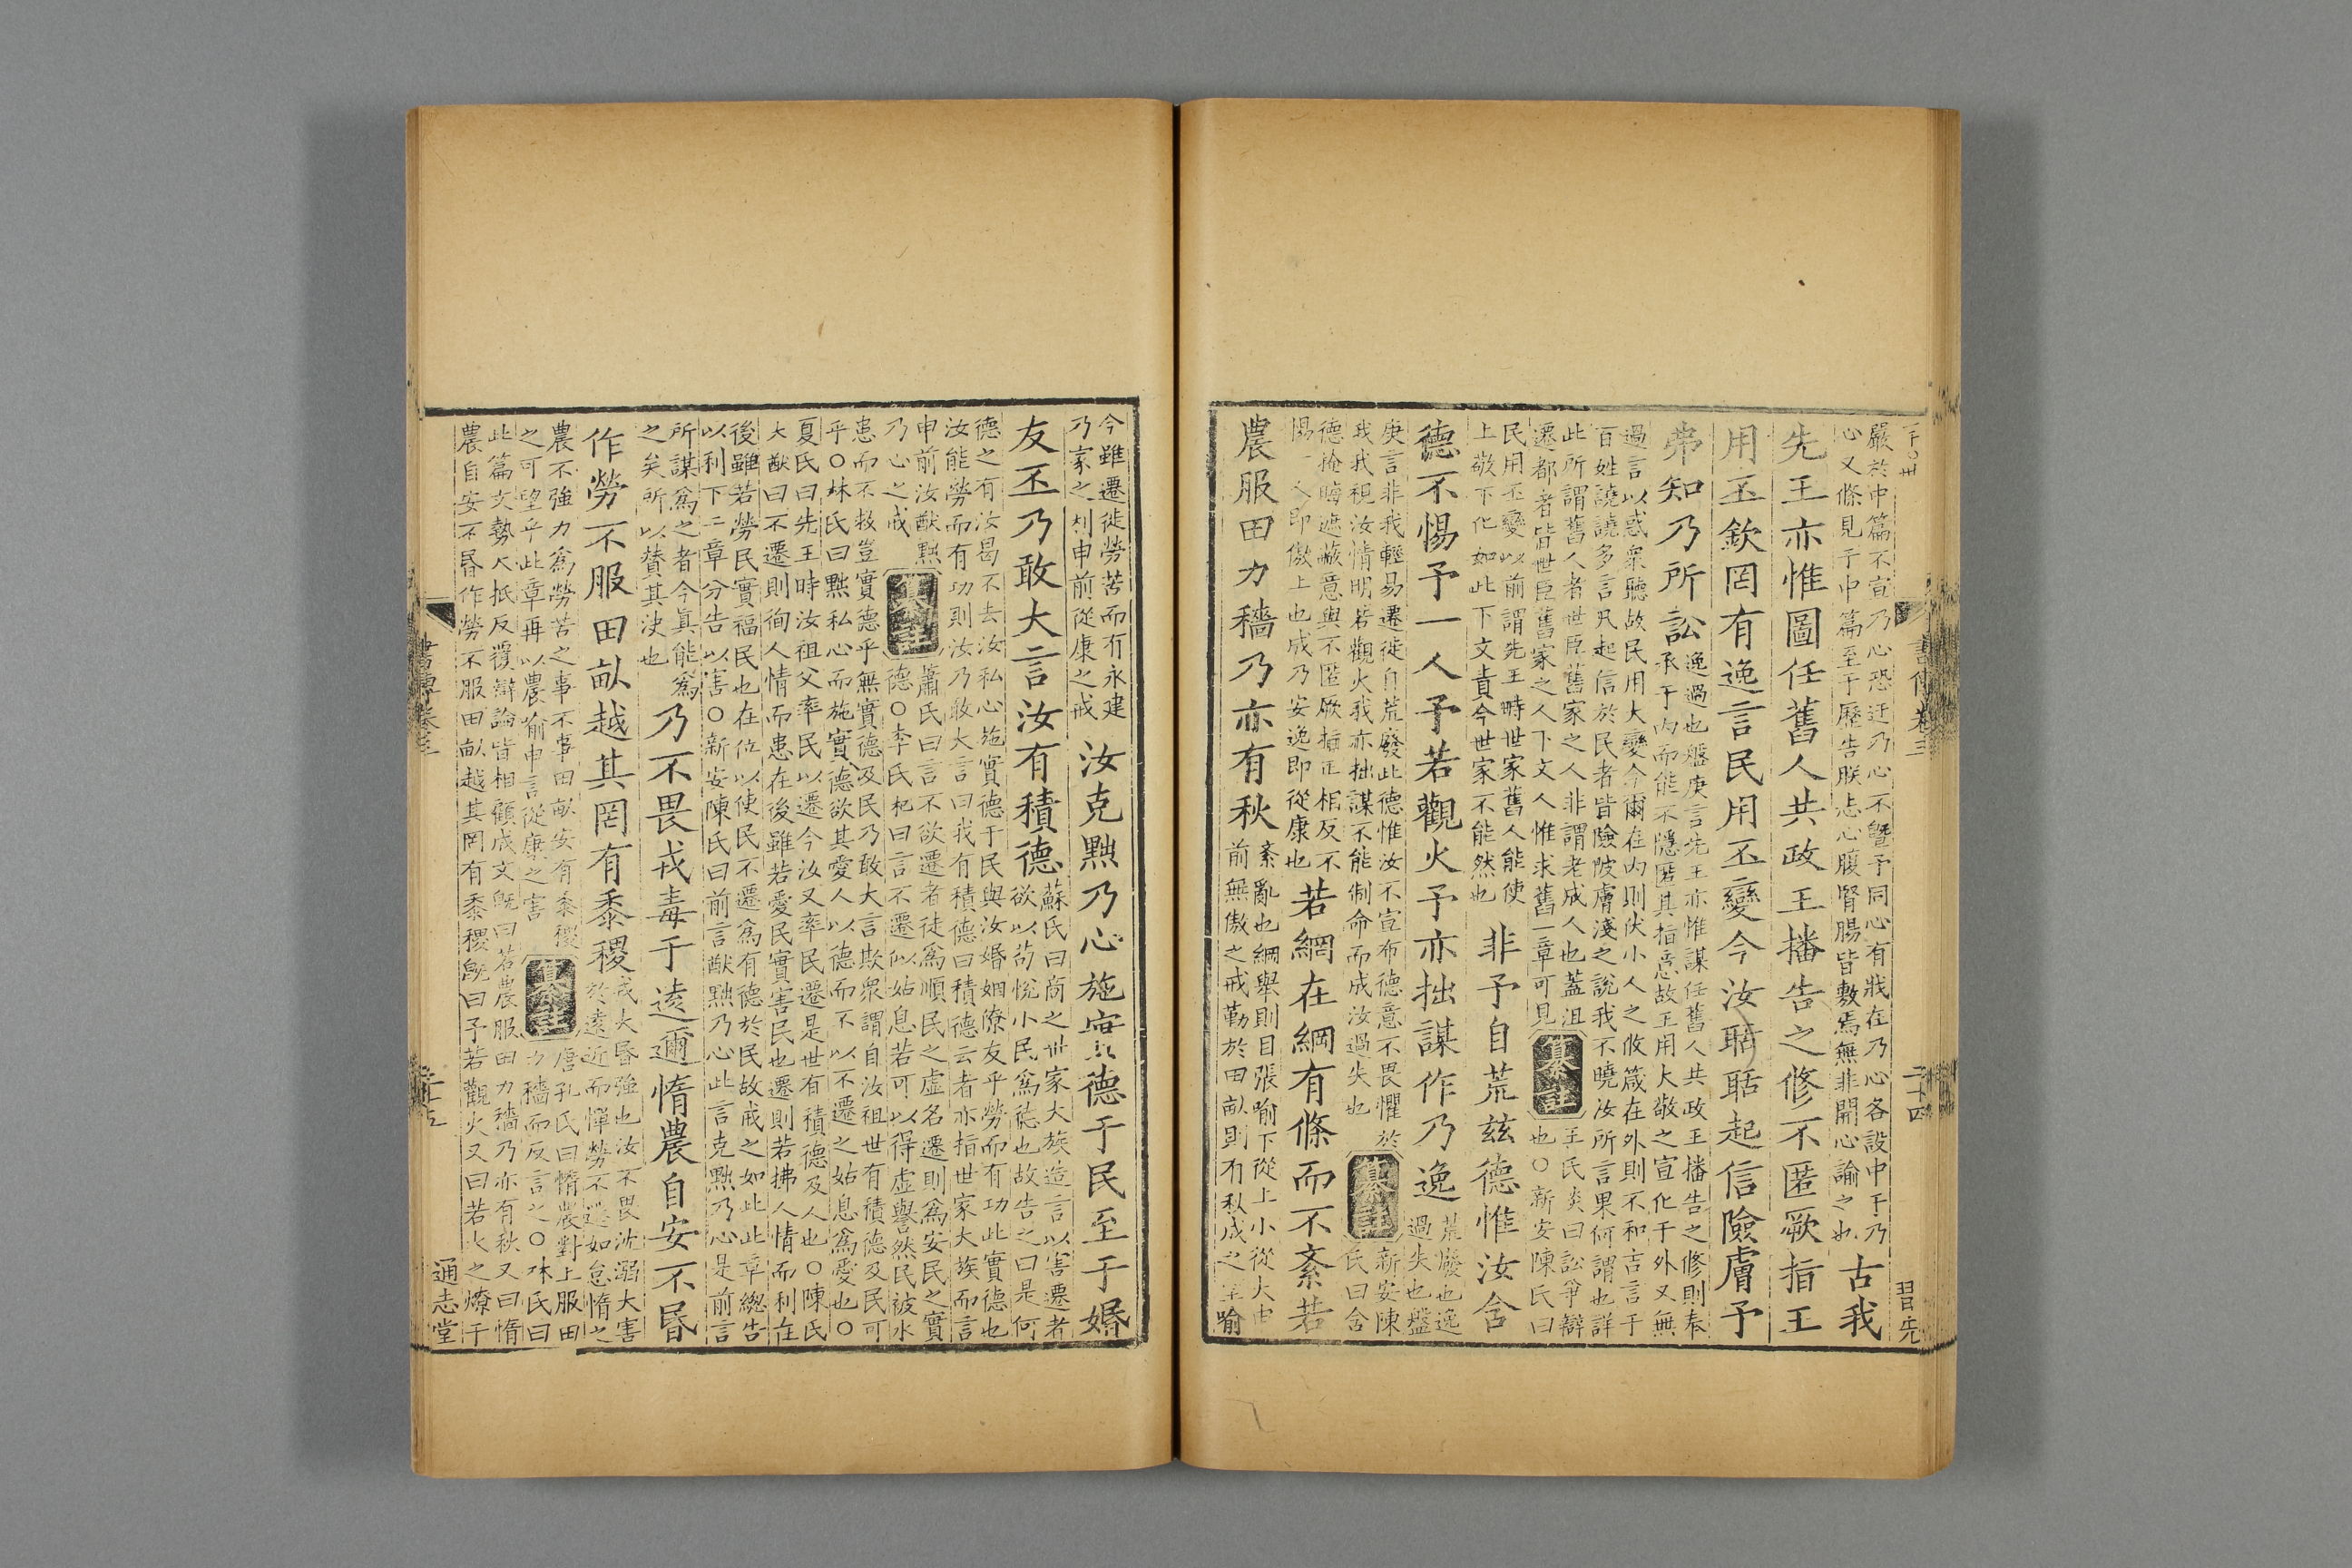 嚴於中篇不宣乃心恐迂乃心不曁予同心有戕在乃心各設中于乃
心又條見于中篇至于歷告朕志心腹腎腸皆敷焉無非開心諭之也
古我
先王亦惟圖任舊人共政王播告之修不匿厥指王
用丕欽罔有逸言民用丕變今汝聒聒起信險膚予
弗知乃所訟
逸過也盤庚言先王亦惟謀任舊人共政王播告之修則奉
承于內而能不隱匿其指意故王用大敬之宣化于外又無
過言以惑衆聽故民用大變今爾在內則伏小人之攸箴在外則不和吉言于
百姓譊譊多言凡起信於民者皆險陂膚淺之說我不曉汝所言果何謂也詳
此所謂舊人者世臣舊家之人非謂老成人也蓋沮
遷都者皆世臣舊家之人下文人惟求舊一章可見
纂註
王氏炎曰訟爭辯
也○新安陳氏曰
民用丕變以前謂先王時世家舊人能使
上敬下化如此下文責今世家不能然也
非予自荒兹德惟汝含
德不惕予一人予若觀火予亦拙謀作乃逸
荒廢也逸
過失也盤
庚言非我輕易遷徙自荒廢此德惟汝不宣布德意不畏懼於
我我視汝情明若觀火我亦拙謀不能制命而成汝過失也
纂註
新安陳
氏曰含
德掩晦遮蔽意與不匿厥指正相反不
惕一人即傲上也成乃安逸即從康也
若網在綱有條而不紊若
農服田力穡乃亦有秋
紊亂也綱舉則目張喻下從上小從大申
前無傲之戒勤於田畝則有秋成之望喻
書傳卷三
二十四
習先
今雖遷徙勞苦而有永建
乃家之利申前從康之戒
汝克黜乃心施實德于民至于婚
友丕乃敢大言汝有積德
蘇氏曰商之世家大族造言以害遷者
欲以苟悅小民爲德也故告之曰是何
德之有汝曷不去汝私心施實德于民與汝婚姻僚友乎勞而有功此實德也
汝能勞而有功則汝乃敢大言曰我有積德曰積德云者亦指世家大族而言
申前汝猷黜
乃心之戒
纂註
蕭氏曰言不欲遷者徒爲順民之虛名遷則爲安民之實
德○李氏杞曰言不遷似姑息若可以得虛譽然民被水
患而不救豈實德乎無實德及民乃敢大言欺衆謂自汝祖世有積德及民可
乎○林氏曰黜私心而施實德欲其愛人以德而不以不遷之姑息爲愛也○
夏氏曰先王時汝祖父率民以遷今汝又率民遷是世有積德及人也○陳氏
大猷曰不遷則徇人情而患在後雖若愛民實害民也遷則若拂人情而利在
後雖若勞民實福民也在位以使民不遷爲有德於民故戒之如此此章緫告
以利下二章分告以害○新安陳氏曰前言猷黜乃心此言克黜乃心是前言
所謀爲之者今眞能爲
之矣所以替其決也
乃不畏戎毒于遠邇惰農自安不昬
作勞不服田畝越其罔有黍稷
戎大昬強也汝不畏沈溺大害
於遠近而憚勞不遷如怠惰之
農不強力爲勞苦之事不事田畝安有黍稷
之可望乎此章再以農喻申言從康之害
纂註
唐孔氏曰惰農對上服田
力穡而反言之○林氏曰
此篇文勢大抵反覆辯論皆相顧成文旣曰若農服田力穡乃亦有秋又曰惰
農自安不昬作勞不服田畝越其罔有黍稷旣曰予若觀火又曰若火之燎于
書傳卷三
二十五
通志堂